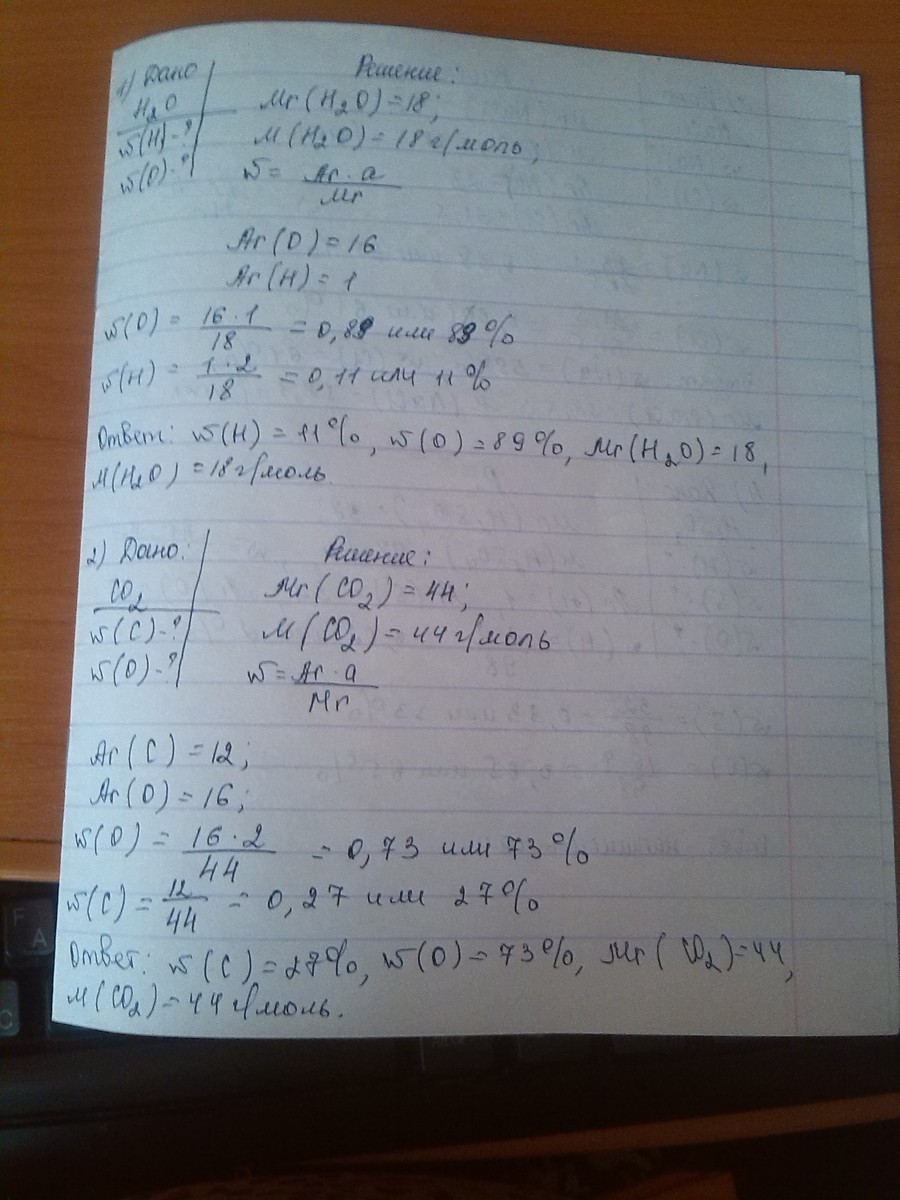 1) Дано
Решение:
H₂O
Mr(H₂O)=18;
w(H)-?
M(H₂O)=18 г/моль;
w(O)-?
w= Ar·a
Mr
Ar(O)=16
Ar(H)=1
w(O) = 16·1/18 = 0,89 или 89%
w(H) = 1·2/18 = 0,11 или 11%
Ответ: w(H)=11%, w(O)=89%, Mr(H₂O)=18,
M(H₂O)=18 г/моль.
2) Дано:
Решение:
CO₂
Mr(CO₂)=44;
w(C)-?
M(CO₂)=44 г/моль
w(O)-?
w= Ar·a
Mr
Ar(C)=12;
Ar(O)=16;
w(O) = 16·2/44 = 0,73 или 73%
w(C) = 12/44 = 0,27 или 27%
Ответ: w(C)=27%, w(O)=73%, Mr(CO₂)=44,
M(CO₂)=44 г/моль.